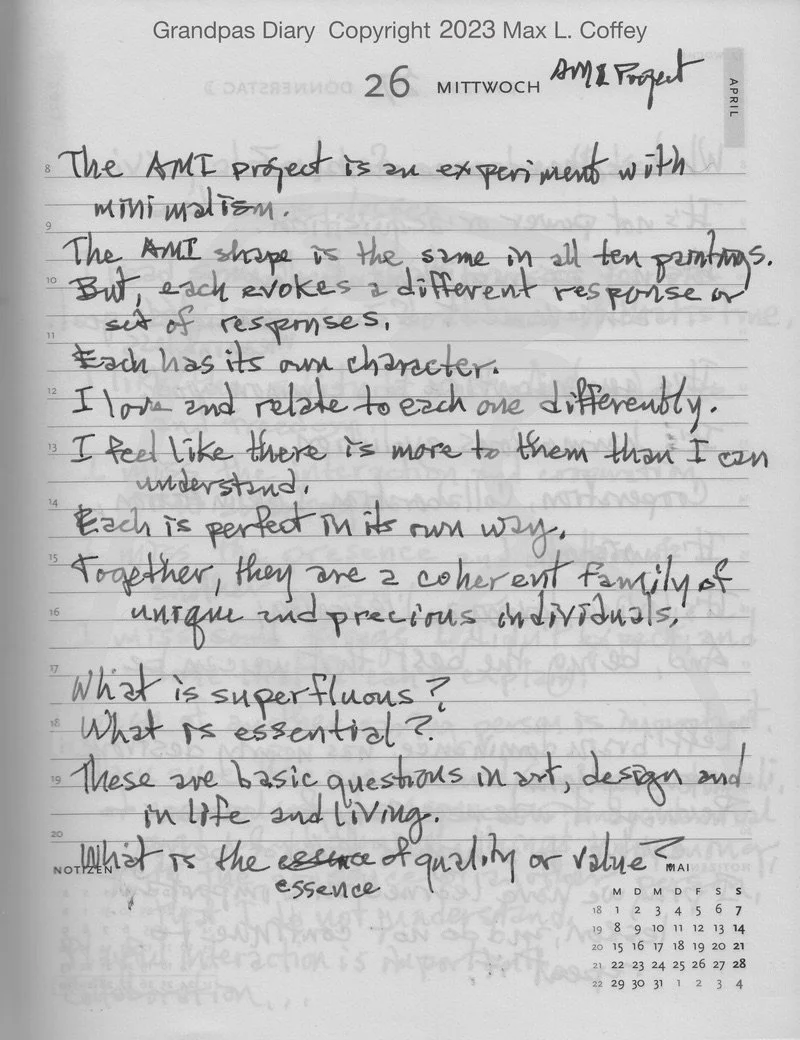 Grandpas Diary Copyright 2023 Max L. Coffey
26 MITTWOCH AMI Project
APRIL
8 The AMI project is an experiment with
minimalism.
9
The AMI shape is the same in all ten paintings.
10 But, each evokes a different response or
set of responses.
11
Each has its own character.
12 I love and relate to each one differently.
13 I feel like there is more to them than I can
understand.
14
Each is perfect in its own way.
15 Together, they are a coherent family of
16 unique and precious individuals.
17
What is superfluous?
18 What is essential?
19 These are basic questions in art, design and
in life and living.
20
What is the essence of quality or value?
essence
NOTIZEN
MAI
M D M D F S S
18 1 2 3 4 5 6 7
19 8 9 10 11 12 13 14
20 15 16 17 18 19 20 21
21 22 23 24 25 26 27 28
22 29 30 31 1 2 3 4